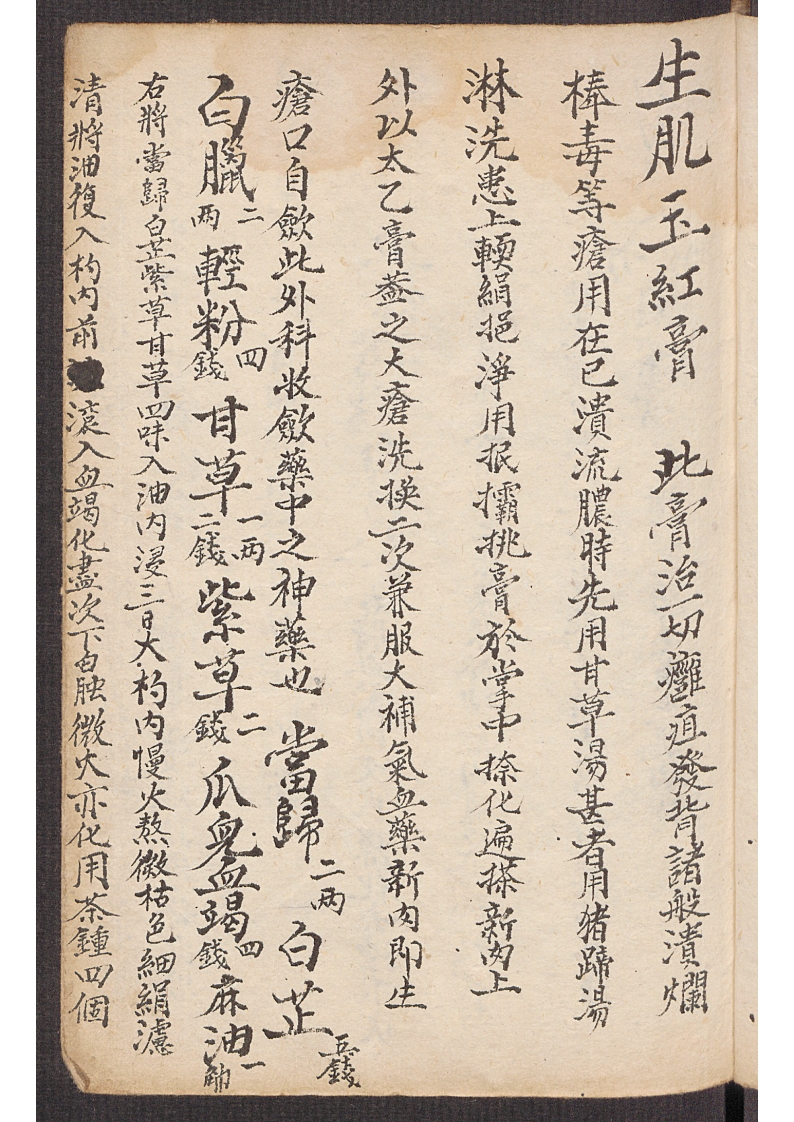 生肌玉紅膏　此膏治一切癰疽發背諸般潰爛
棒毒等瘡用在已潰流膿時先用甘草湯甚者用猪蹄湯
淋洗患上輭絹挹淨用抿攔挑膏於掌中捺化遍搽新肉上
外以太乙膏蓋之大瘡洗換二次兼服大補氣血藥新肉即生
瘡口自斂此外科收斂藥中之神藥也　當歸二両　白芷五錢
白臘二両　輕粉四錢　甘草一両二錢　紫草二錢　瓜兒血竭四錢　麻油一觔
右將當歸白芷紫草甘草四味入油内浸三日大杓内慢火熬微枯色細絹濾
清將油復入杓内前滚入血竭化盡次下白䖝微火亦化用茶鍾四個